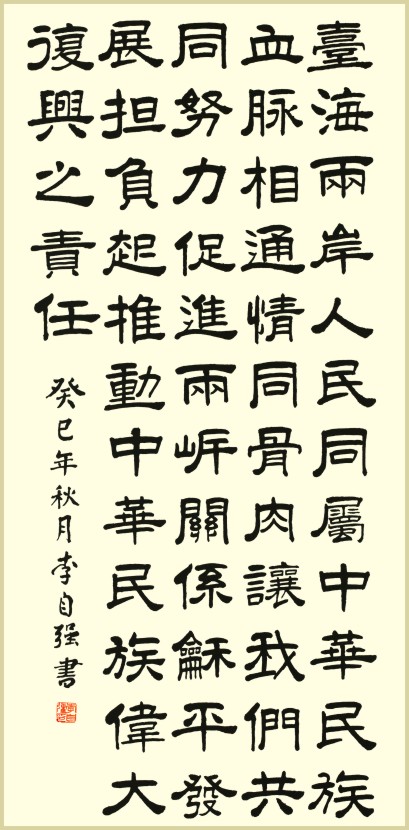 臺海兩岸人民同屬中華民族
血脉相通情同骨肉讓我們共
同努力促進兩岸關係龢平發
展担負起推動中華民族偉大
復興之責任
癸巳年秋月李自强書